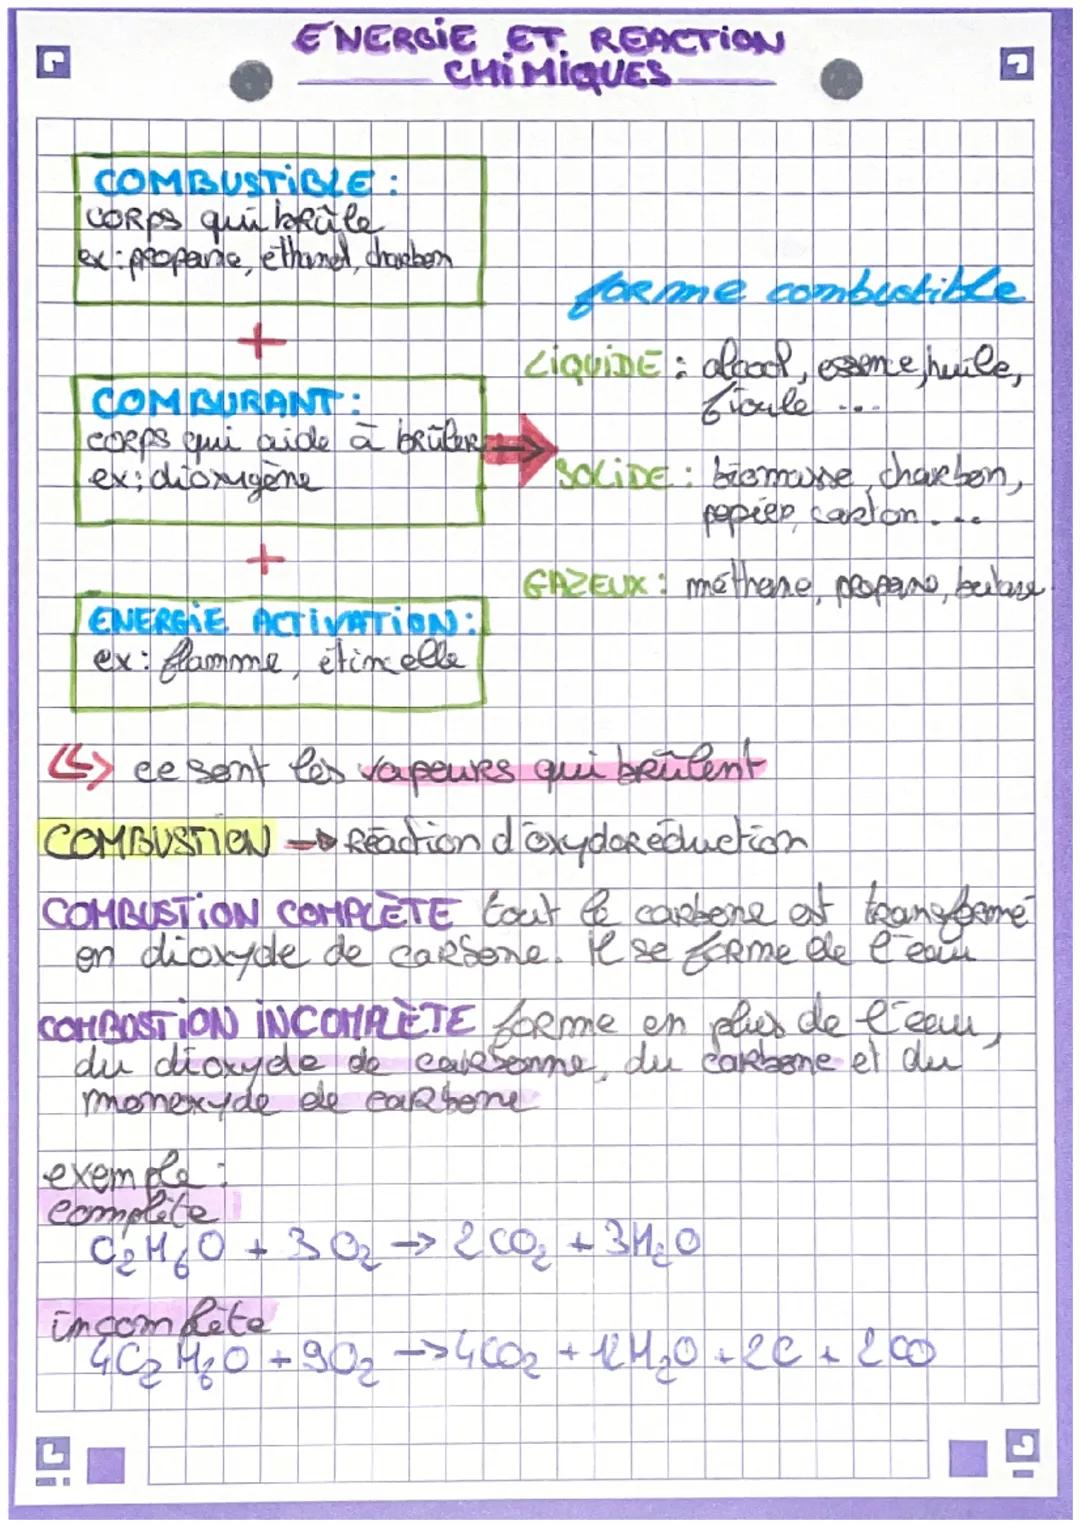 ENERGIE ET REACTION
CHIMIQUES
COMBUSTIBLE :
corps qui brûle
ex : propane, éthanol, charbon
+
COMBURANT :
corps qui aide à brûler
ex : dioxygène
+
ENERGIE ACTIVATION :
ex : flamme, étincelle
forme combustible
LIQUIDE : alcool, essence, huile,
fioule ...
SOLIDE : biomasse, charbon,
papier, carton ...
GAZEUX : méthane, propane, butane
ce sont les vapeurs qui brûlent
COMBUSTION → Réaction d'oxydoréduction
COMBUSTION COMPLÈTE tout le carbone est transformé
en dioxyde de carbone. Il se forme de l'eau
COMBUSTION INCOMPLÈTE forme en plus de l'eau,
du dioxyde de carbonne, du carbone et du
monoxyde de carbone
exemple :
complète
C₂H₆O + 3O₂ → 2CO₂ + 3H₂O
incomplète
4C₂H₆O + 9O₂ → 4CO₂ + 12H₂O + 2C + 2CO